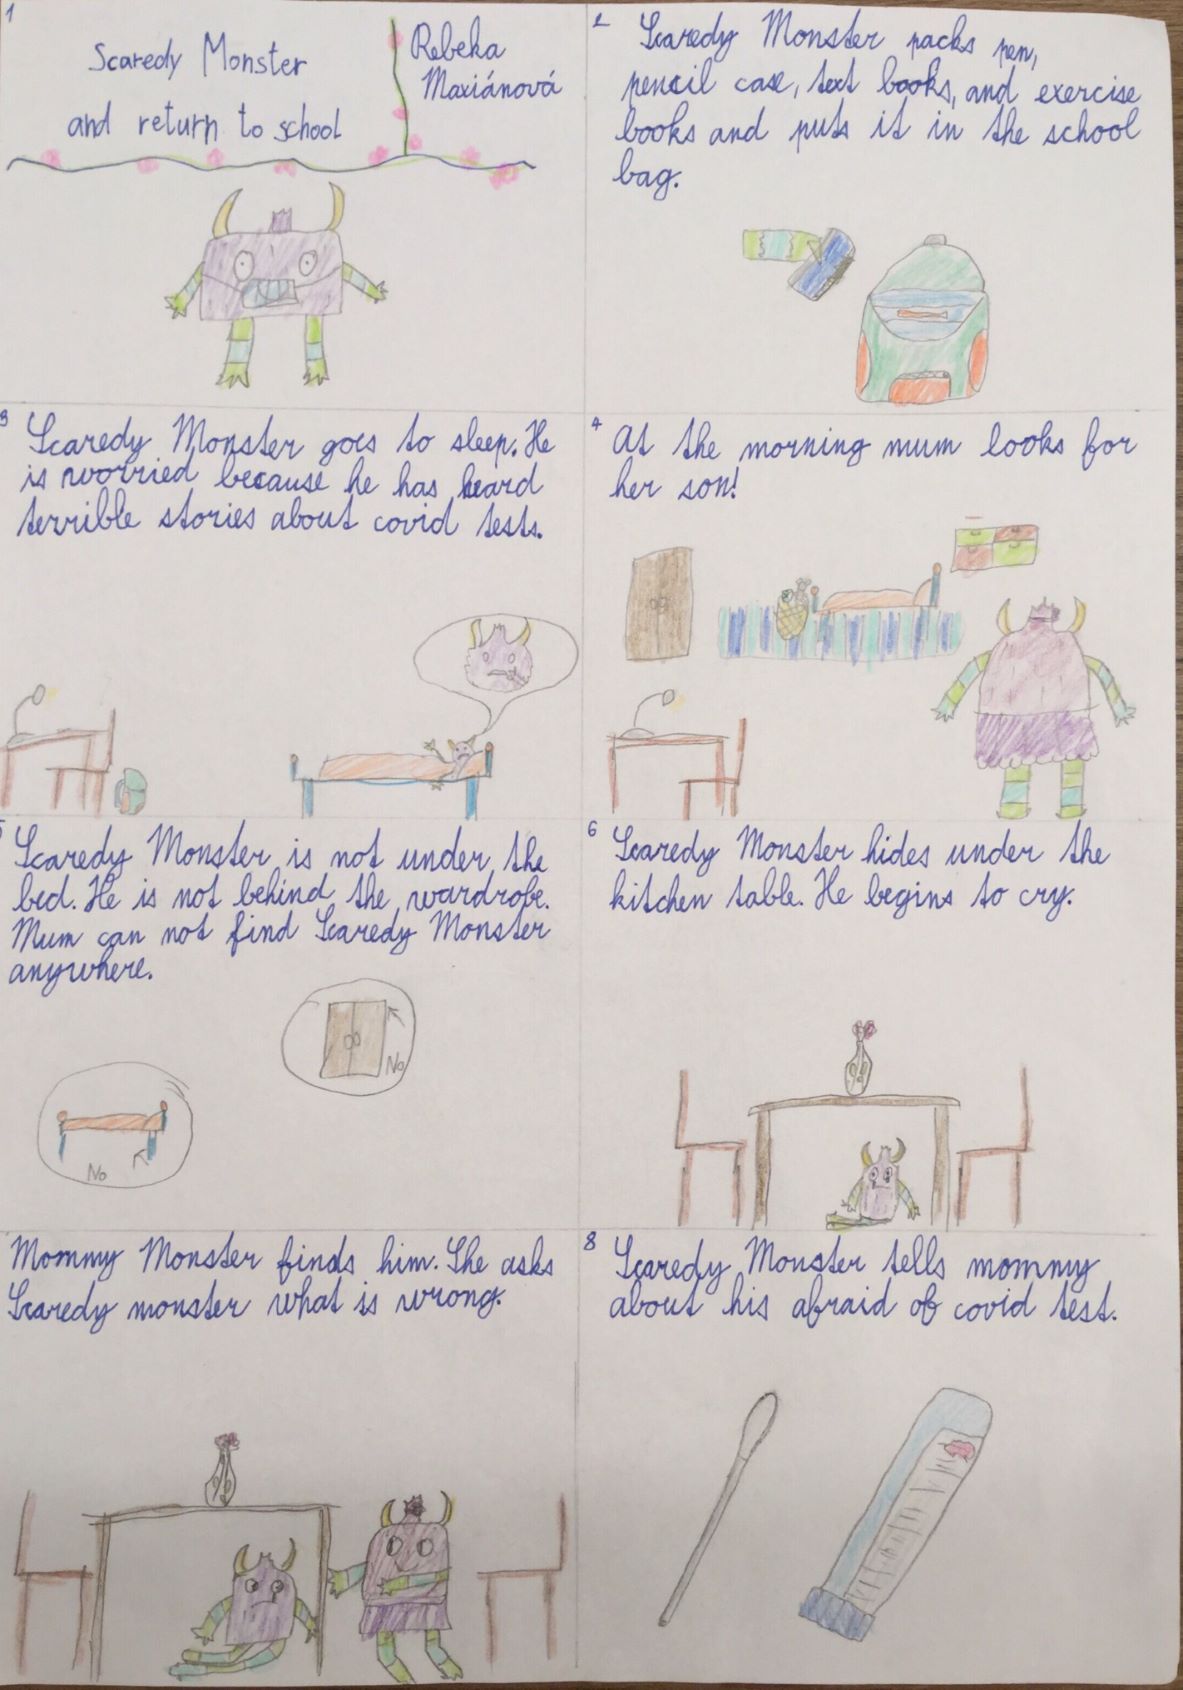 1
Scaredy Monster
and return to school
Rebeka
Maxiánová
2 Scaredy Monster packs pen,
pencil case, text books, and exercise
books and puts it in the school
bag.
3 Scaredy Monster goes to sleep. He
is worried because he has heard
terrible stories about covid tests.
4 At the morning mum looks for
her son!
5 Scaredy Monster is not under the
bed. He is not behind the wardrobe.
Mum can not find Scaredy Monster
anywhere.
No
No
6 Scaredy Monster hides under the
kitchen table. He begins to cry.
Mommy Monster finds him. She asks
Scaredy monster what is wrong.
8 Scaredy Monster tells mommy
about his afraid of covid test.